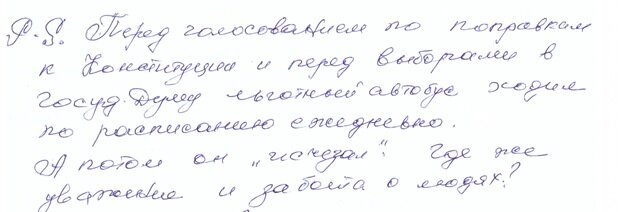 P.S. Перед голосованием по поправкам
к Конституции и перед выборами в
Госуд. Думу льготный автобус ходил
по расписанию ежедневно.
А потом он „исчезал“. Где же
уважение и забота о людях?